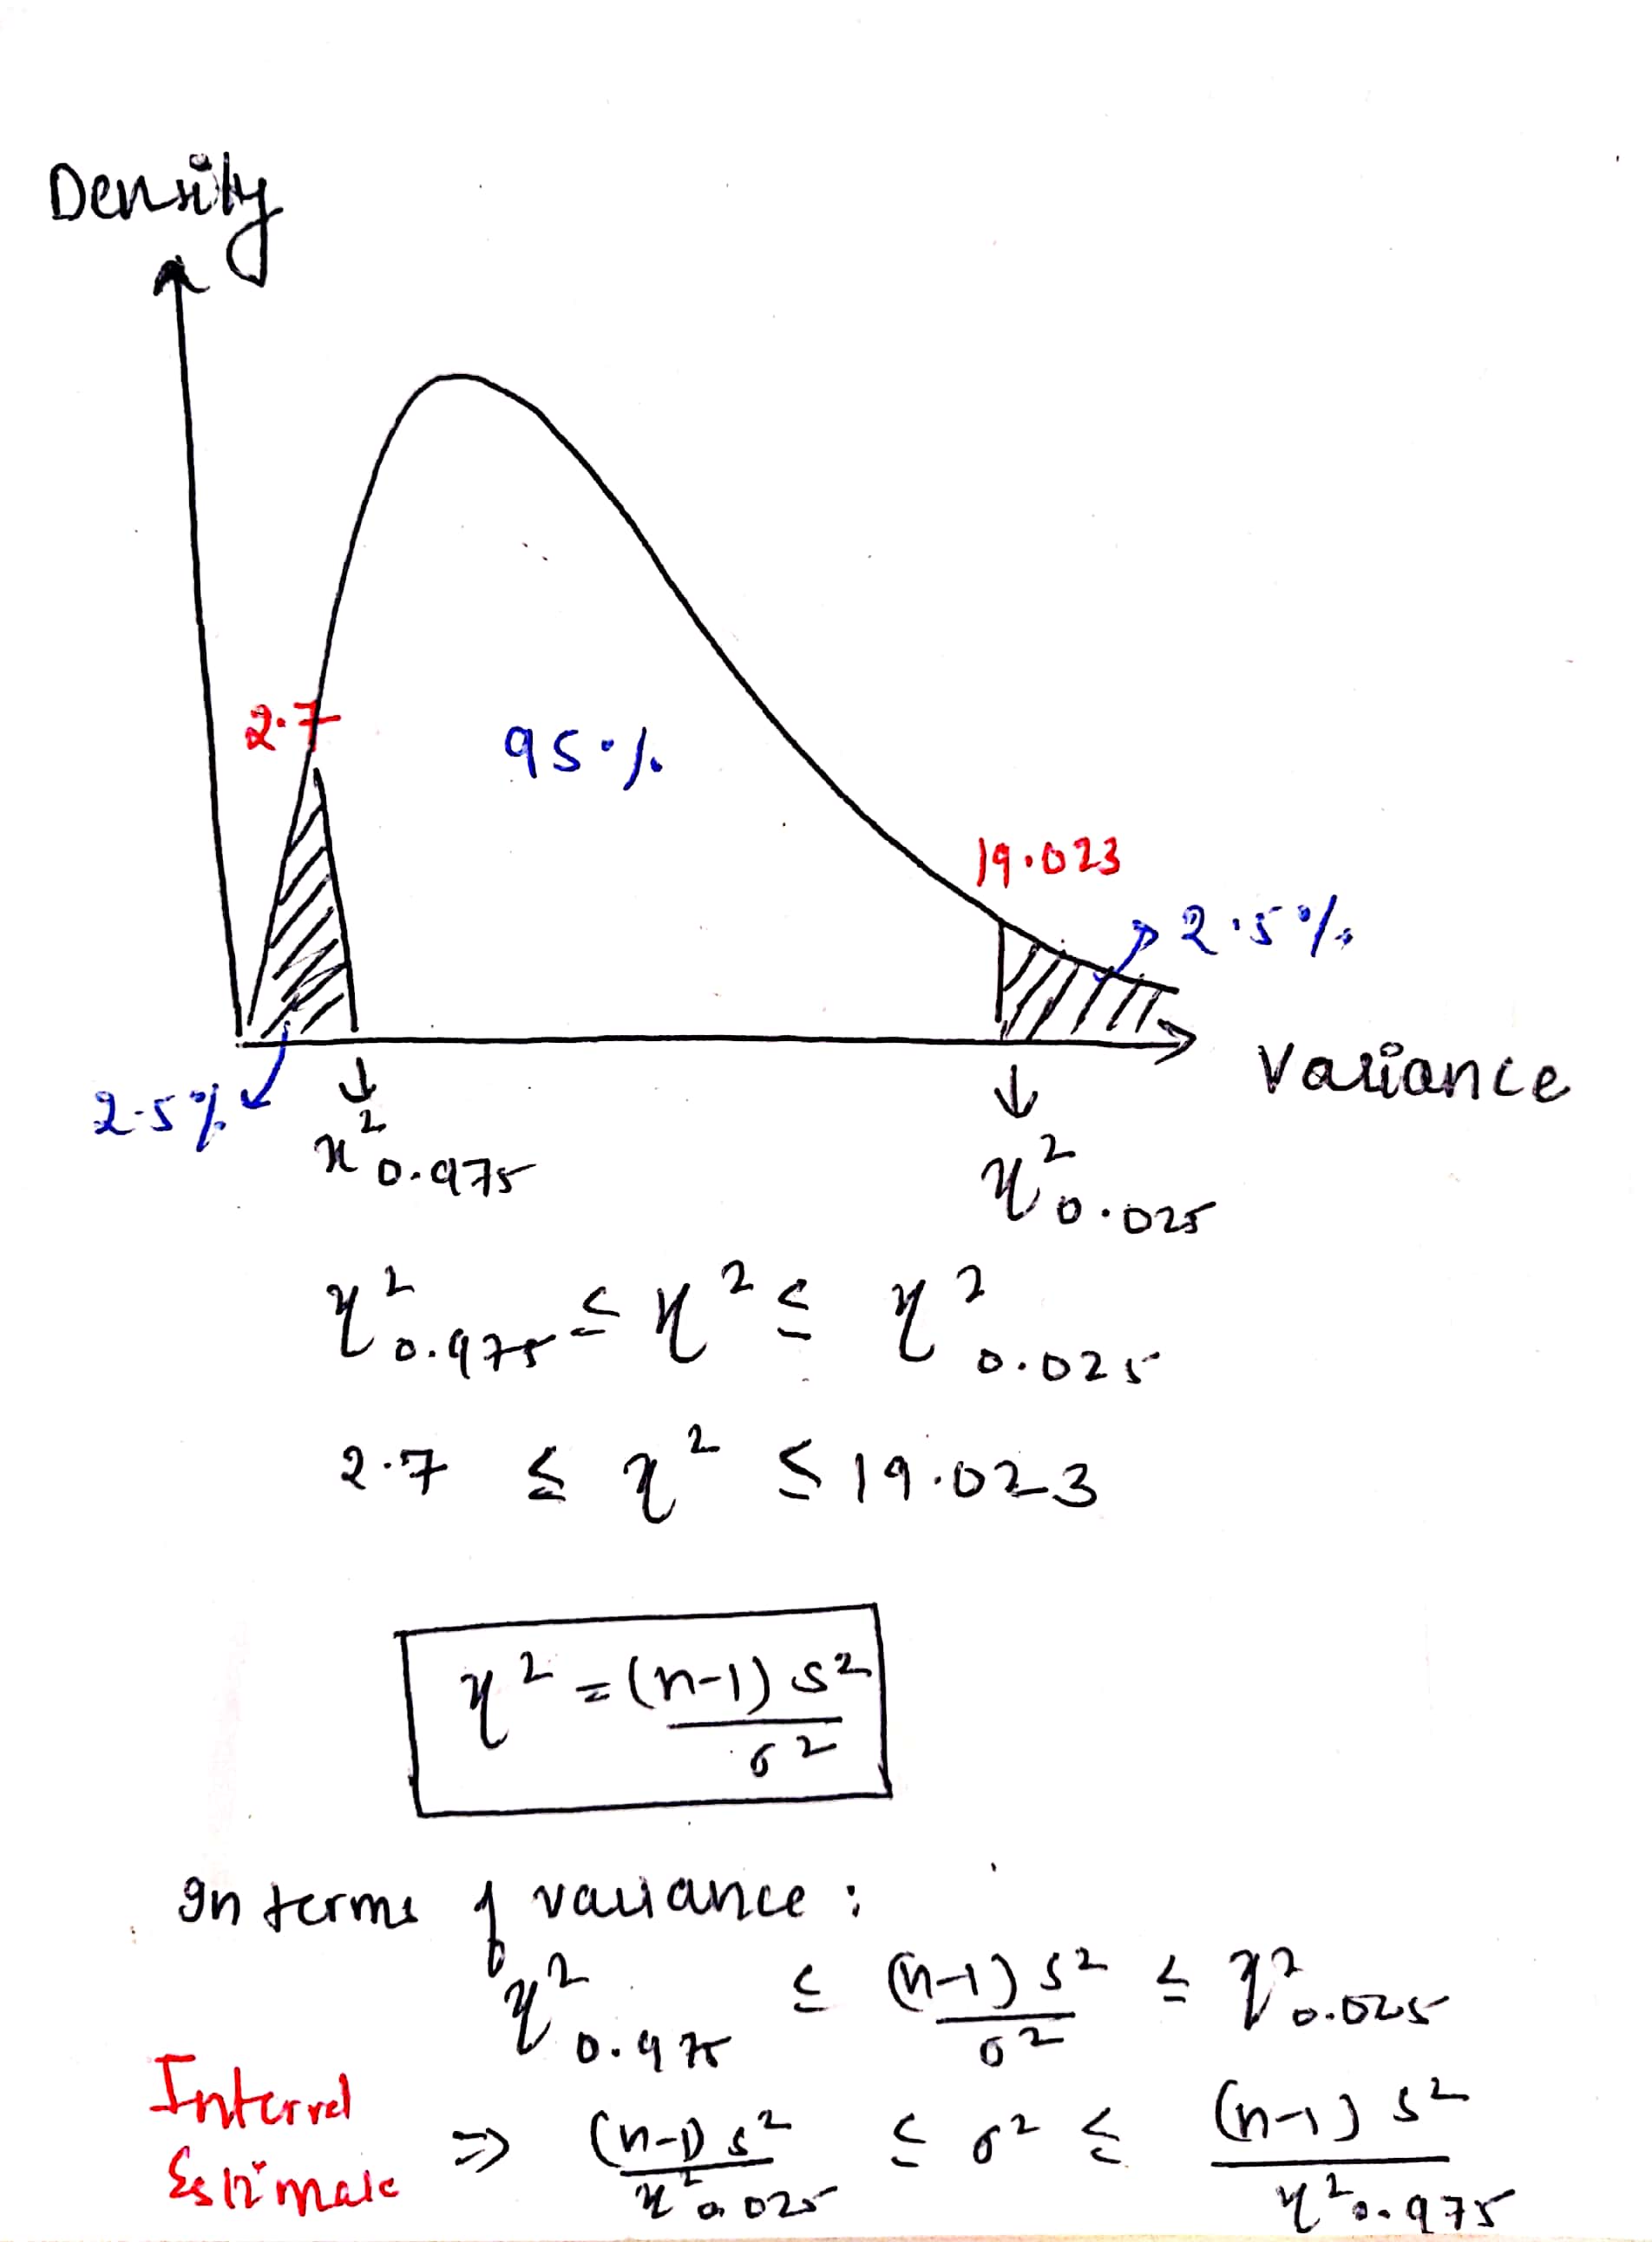 Density
2.7
95%
19.023
2.5%
Variance
2.5%
χ²0.975
χ²0.025
χ²0.975 ≤ χ² ≤ χ²0.025
2.7 ≤ χ² ≤ 19.023
χ² = (n-1) s² / σ²
In terms of variance :
χ²0.975 ≤ (n-1) s² / σ² ≤ χ²0.025
Interval
Estimate
⇒ (n-1) s² / χ²0.025 ≤ σ² ≤ (n-1) s² / χ²0.975